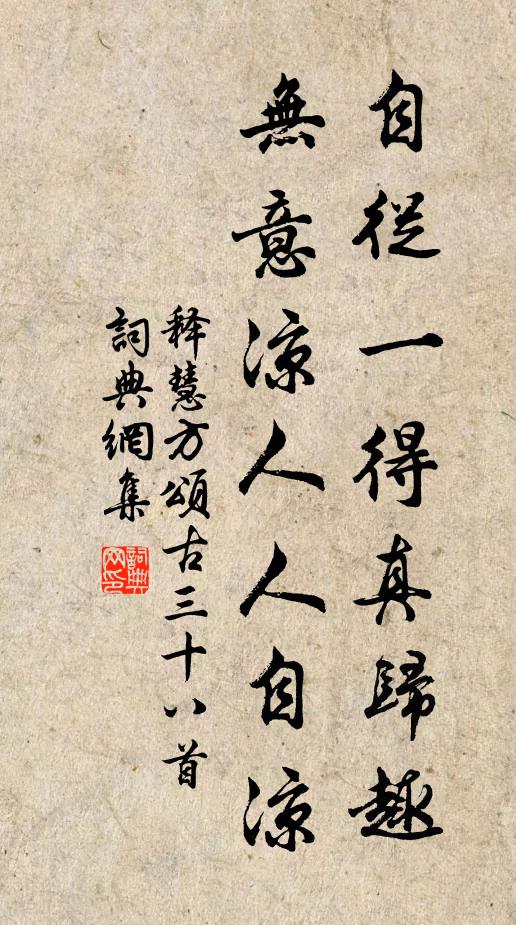 自從一得真歸趣
無意涼人人自涼
释慧方頌古三十八首
詞典網集
詞典網印